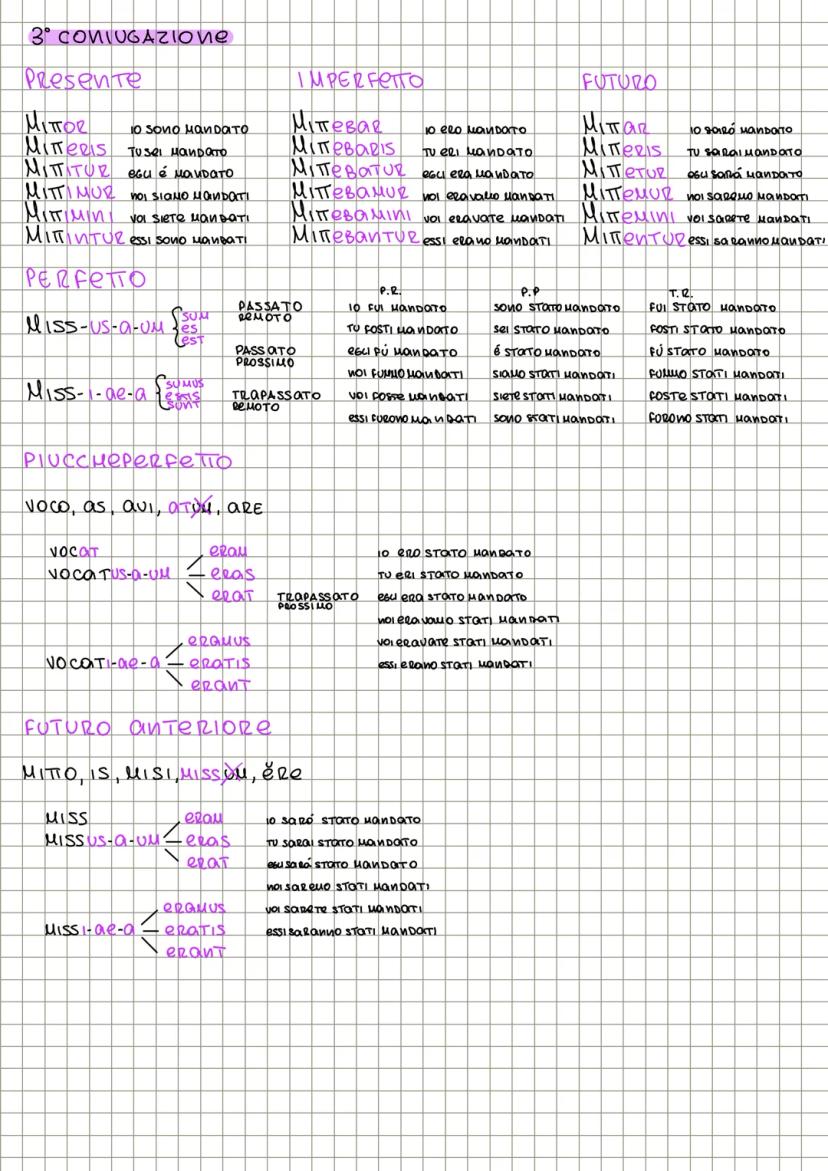 3° CONIUGAZIONE
PRESENTE IMPERFETTO FUTURO
MITTOR IO SONO MANDATO MITTEBAR IO ERO MANDATO MITTAR IO SARÓ MANDATO
MITTERIS TU SEI MANDATO MITTEBARIS TU ERI MANDATO MITTERIS TU SARAI MANDATO
MITTITUR EGLI É MANDATO MITTEBATUR EGLI ERA MANDATO MITTETUR EGLI SARÁ MANDATO
MITTIMUR NOI SIAMO MANDATI MITTEBAMUR NOI ERAVAMO MANDATI MITTEMUR NOI SAREMO MANDATI
MITTIMINI VOI SIETE MANDATI MITTEBAMINI VOI ERAVATE MANDATI MITTEMINI VOI SARETE MANDATI
MITTINTUR ESSI SONO MANDATI MITTEBANTUR ESSI ERANO MANDATI MITTENTUR ESSI SARANNO MANDATI
PERFETTO
P.R. P.P T.R.
MISS-US-A-UM SUM ES EST
PASSATO REMOTO IO FUI MANDATO SONO STATO MANDATO FUI STATO MANDATO
TU FOSTI MANDATO SEI STATO MANDATO FOSTI STATO MANDATO
PASSATO PROSSIMO EGLI FÚ MANDATO É STATO MANDATO FÚ STATO MANDATO
NOI FUMMO MANDATI SIAMO STATI MANDATI FUMMO STATI MANDATI
MISS-I-AE-A SUMUS ESTIS SUNT
TRAPASSATO REMOTO VOI FOSTE MANDATI SIETE STATI MANDATI FOSTE STATI MANDATI
ESSI FURONO MANDATI SONO STATI MANDATI FURONO STATI MANDATI
PIUCCHEPERFETTO
VOCO, AS, AVI, ATUM, ARE
VOCAT ERAM IO ERO STATO MANDATO
VOCATUS-A-UM ERAS TU ERI STATO MANDATO
ERAT TRAPASSATO PROSSIMO EGLI ERA STATO MANDATO
NOI ERAVAMO STATI MANDATI
ERAMUS VOI ERAVATE STATI MANDATI
VOCATI-AE-A ERATIS ESSI ERANO STATI MANDATI
ERANT
FUTURO ANTERIORE
MITTO, IS, MISI, MISSUM, ĔRE
MISS ERAM IO SARÓ STATO MANDATO
MISSUS-A-UM ERAS TU SARAI STATO MANDATO
ERAT EGLI SARÁ STATO MANDATO
NOI SAREMO STATI MANDATI
ERAMUS VOI SARETE STATI MANDATI
MISSI-AE-A ERATIS ESSI SARANNO STATI MANDATI
ERANT